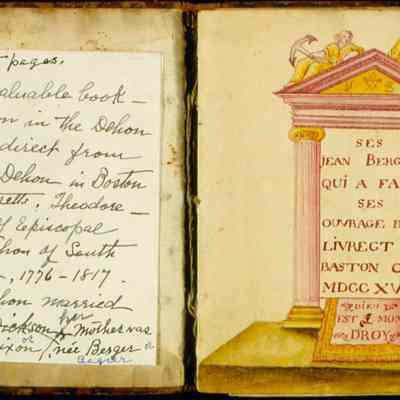 pages.
valuable book –
in The Dehon
direct from
Dehon in Boston
Theodore –
Episcopal
of South
–, 1776–1817.
married
her
Dickson, Mother was
or
née Berger or
Begier
SES
JEAN BERG
QUI A FA
SES
OUVRAGE
LIVRECT
BASTON
MDCC XV
DIEU
EST MON
DROY